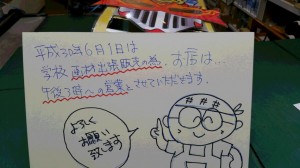 平成30年6月1日は
学校 画材出張販売の為、お店は…
午後7時への営業とさせていただきます。
よろしく
お願い
致します